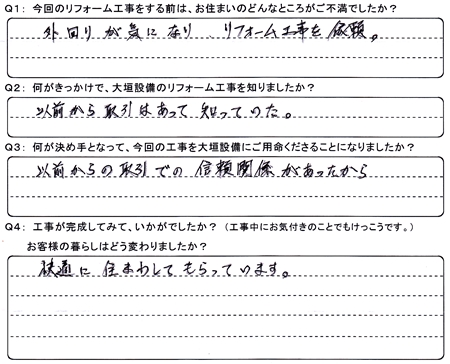 Q1: 今回のリフォーム工事をする前は、お住まいのどんなところがご不満でしたか?
外回りが気になり、リフォーム工事を依頼。
Q2: 何がきっかけで、大垣設備のリフォーム工事を知りましたか?
以前から取引はあって知っていた。
Q3: 何が決め手となって、今回の工事を大垣設備にご用命くださることになりましたか?
以前からの取引での信頼関係があったから
Q4: 工事が完成してみて、いかがでしたか?(工事中にお気付きのことでもけっこうです。)
お客様の暮らしはどう変わりましたか?
快適に住まわしてもらっています。